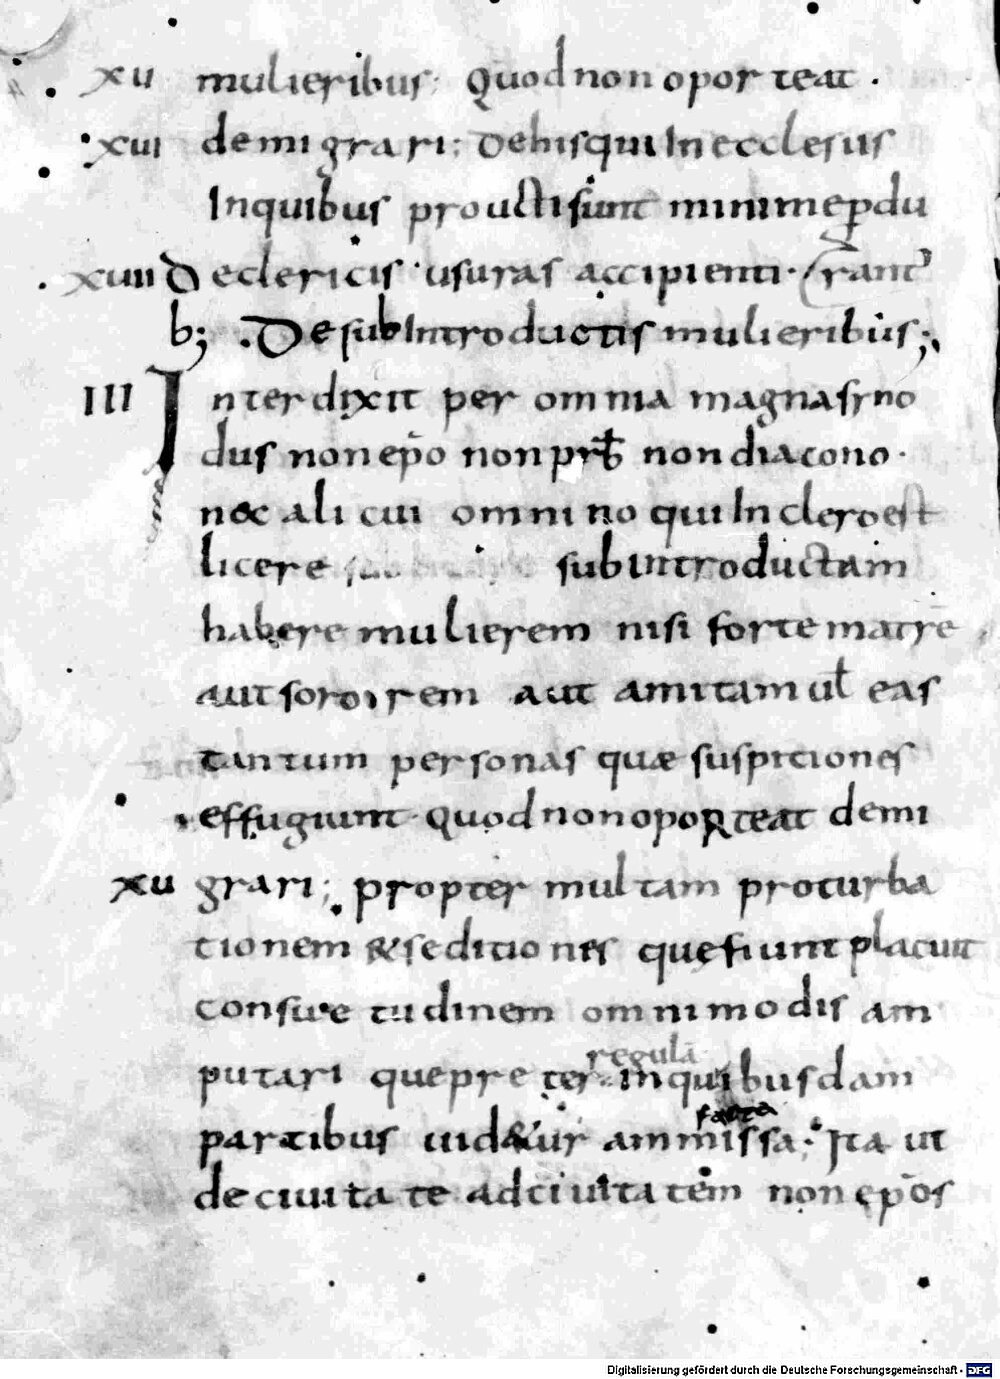 xu mulieribus; Quod non oporteat.
xui demigrari; De his qui In ecclesiis
In quibus prouecti sunt minime perdu
xuii De clericis usuras accipienti· (rant'
b; .De subIntroductis mulieribus;
III Interdixit per omnia magna syno
dus non ep̄o non prb̄ non diacono·
nec alicui omnino qui In clero est
licere subintroductam
habere mulierem nisi forte matrē
aut sororem aut amitam ul eas
tantum personas quæ suspiciones
effugiunt· Quod non oporteat demi
xu grari; propter multam proturba
tionem & seditiones quę fiunt placuit
consuetudinem omnimodis am
putari que preter in quibusdam
regulā
partibus uid&ur ammissa; Ita ut
facta
de ciuitate ad ciuitatem non ep̄os
Digitalisierung gefördert durch die Deutsche Forschungsgemeinschaft - DFG